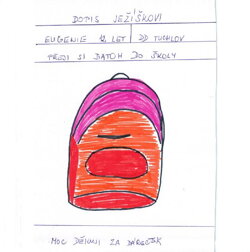 DOPIS JEŽÍŠKOVI
EUGENIE 12 LET DD TUCHLOV
PŘEJI SI BATOH DO ŠKOLY
MOC DĚKUJI ZA DÁREČEK